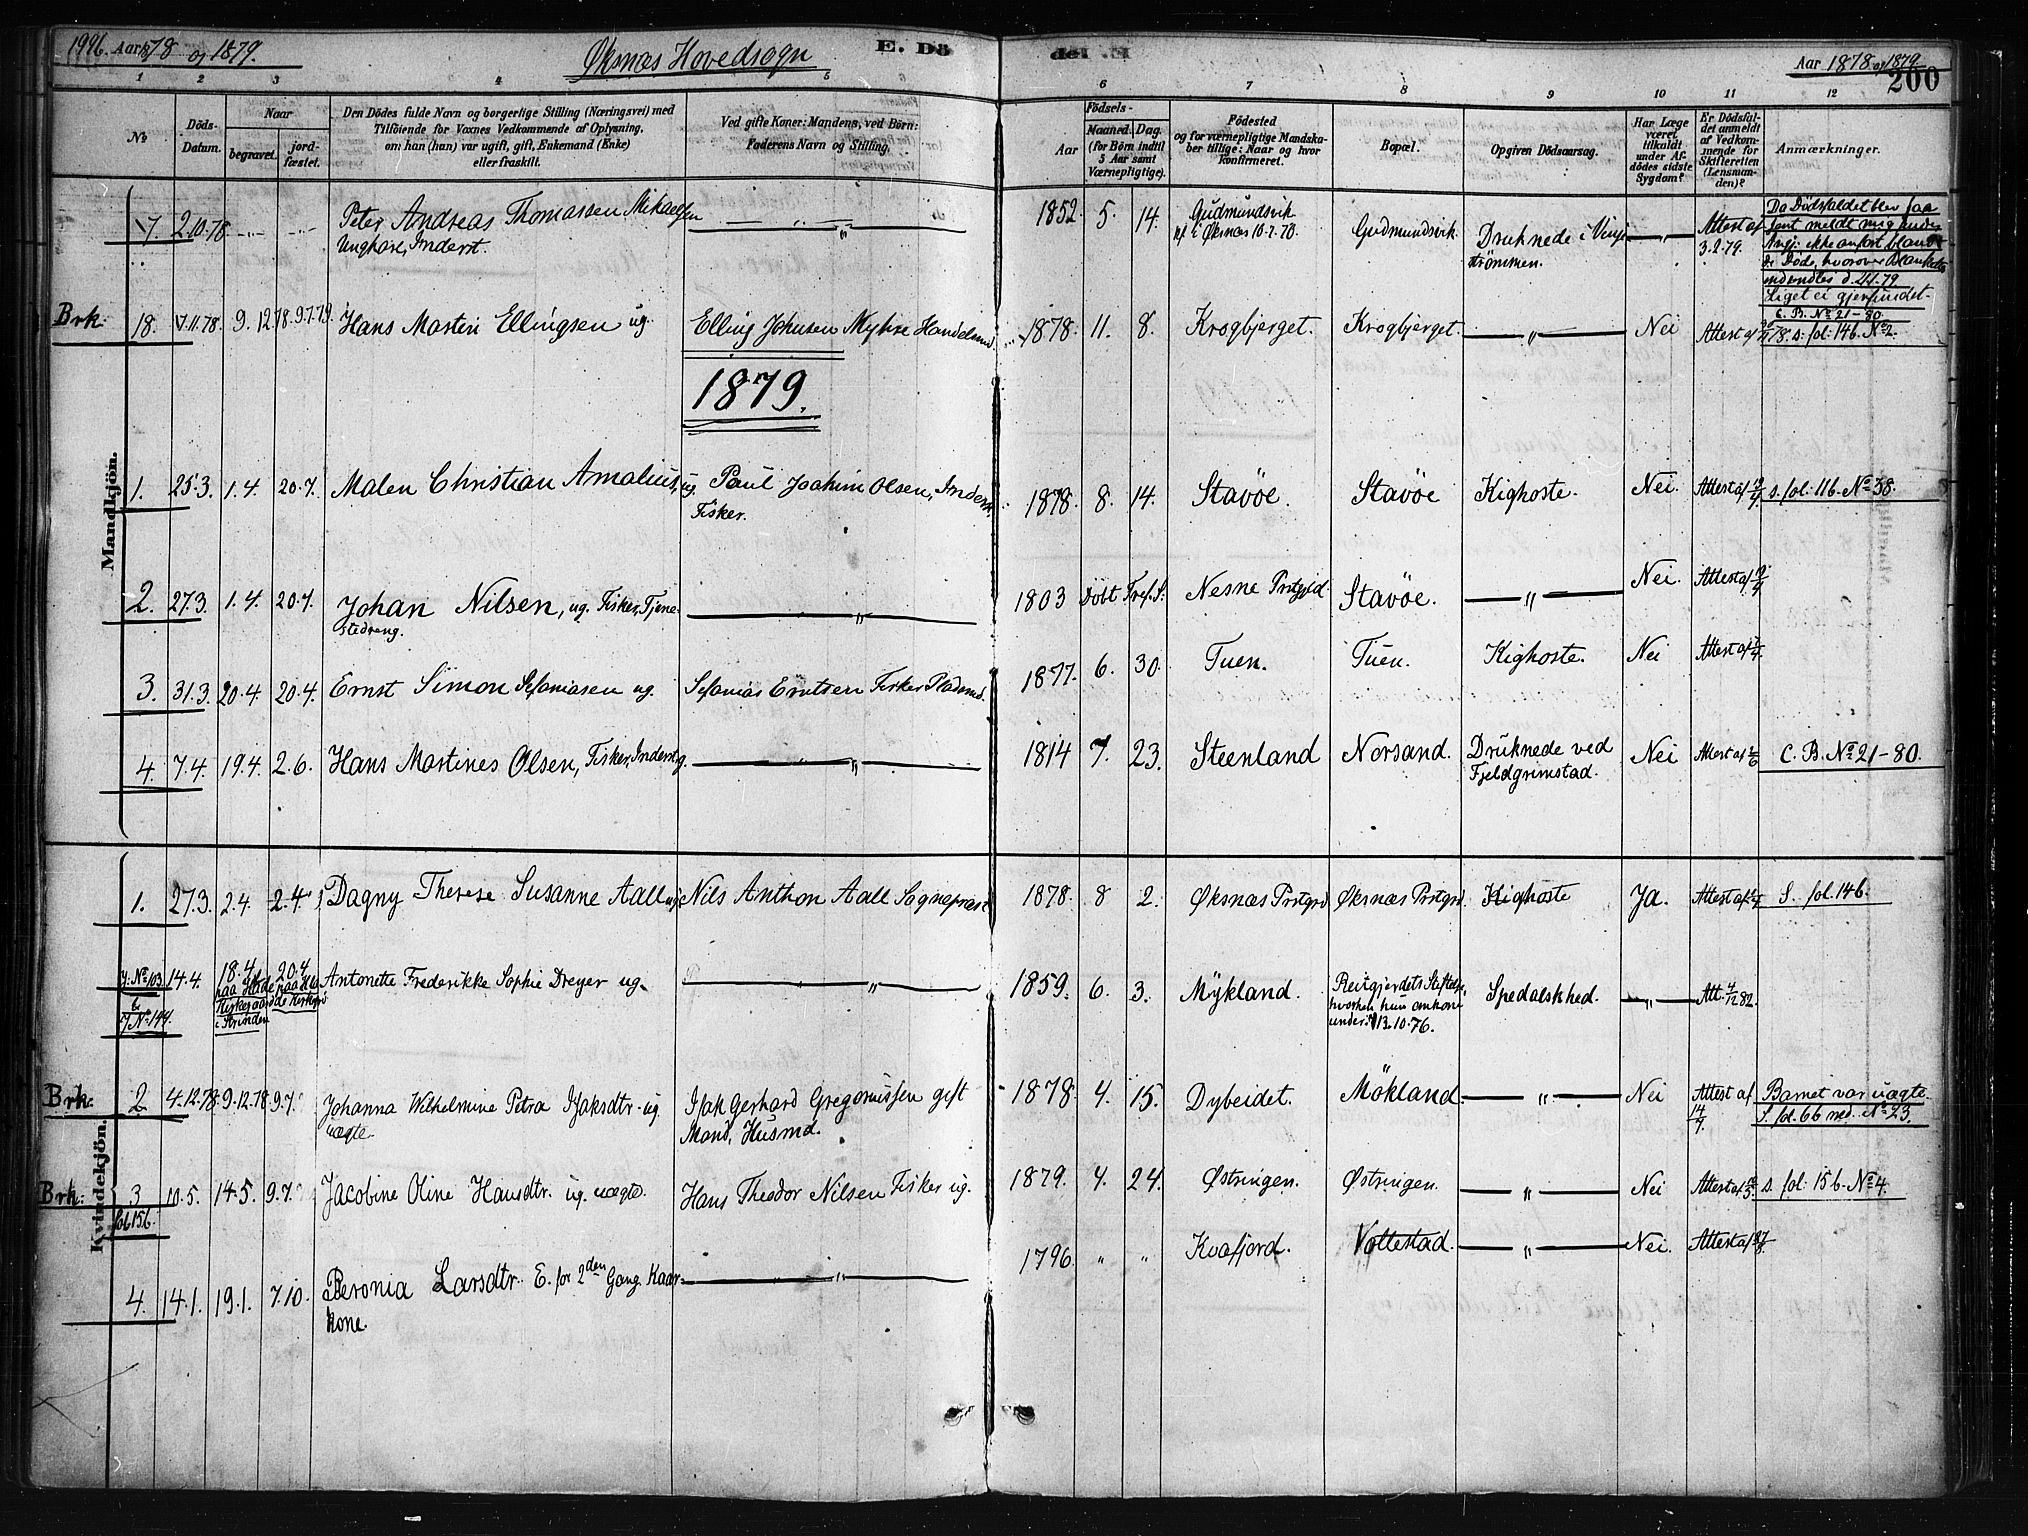 199b. Aar 1878 og 1879.
Øksnæs Hovedsogn
E. Dö
de! .M
Aar 1878 og 1879
200
1 2 3 4 5 6
6 7 8 9 10 11 12
No
Döds-Datum.
Naar
begravet.
jord-fæstet.
Den Dödes fulde Navn og borgerlige Stilling (Næringsvei) med
Tilföiende for Voxnes Vedkommende af Oplysning,
om han (hun) var ugift, gift, Enkemand (Enke)
eller fraskilt.
Ved gifte Koner: Mandens, ved Börn:
Faderens Navn og Stilling.
Födsels-
Aar
Maaned. Dag.
(for Börn indtil
5 Aar samt
Værnepligtige).
Födested
og for værnepligtige Mandska-
ber tillige: Naar og hvor
Konfirmeret.
Bopæl.
Opgiven Dödsaarsag.
Har Læge
været
tilkaldt
under Af-
dödes sidste
Sygdom?
Er Dödsfal-
det anmeldt
af Vedkom-
mende for
Skifteretten
(Lensman-
den)?
Anmærkninger.
Mandkjön.
17. 2.10.78 —„— —„— Peter Andreas Thomassen Mikaelsen —„— 1852. 5. 14. Gudmundsvik Gudmundsvik. Druknede i —„— Attest af
Ungkarl, Inderst. i Øksnæs 10.7.70. strömmen. 3.2.79.
Da Dödsfaldet blev saa
sent meldt mig
ikke anfört blandt
de Döde, hvorover Blanketter
indsendtes d.
Liget ei gjenfundet.
C. B. No 21-80.
Brk: 18. 7.11.78. 9.12.78. 9.7.79. Hans Martin Ellingsen ug. Elling Johnsen Myhre Handelsmd. 1878. 11. 8. Krogbjerget. Krogbjerget. —„— Nei Attest af 78. s. fol: 146. No 2.
1879.
1. 25.3. 1.4. 20.7. Malen Christian Amalius, ug. Paul Joakim Olsen, Inderst. 1878. 8. 14. Stavöe. Stavöe Kighoste. Nei. Attest af s. fol. 116. No 38.
Fisker.
2. 27.3. 1.4. 20.7. Johan Nilsen, ug. Fisker, Tjene- —„— 1803 Döbt Tref. S. Nesne Prstgjld. Stavöe. —„— Nei. Attest af
stedreng.
3. 31.3. 20.4. 20.4. Ernst Simon Sefaniasen ug. Sefanias Erntsen Fisker Pladsmd. 1877. 6. 30. Tuen. Tuen. Kighoste. Nei Attest af
4. 7.4. 19.4. 2.6. Hans Martines Olsen, Fisker, Inderst, g. —„— 1814 7. 23. Steenland Norsand. Druknede ved Nei Attest af C. B. No 21-80.
Fjeldgrimstad.
Kvindekjön.
1. 27.3. 2.4. 2.4 Dagny Therese Susanne Aall ug. Nils Anthon Aall Sognepræst 1878. 8 2. Øksnæs Prstgrd Øksnæs Prstgrd. Kighoste Ja. Attest af S. fol. 146.
J. No 103. 14.4. 18.4 20.4 Antonette Frederikke Sophie Dreyer ug. —„— 1859. 6. 3. Mykland. Reitgjerdets Stiftelse, Spedalskhed. —„— Att. 4/12 82.
& J No 144. paa Hlade Kirkegaard i Strinden paa Hla-de Kirkegrd hvorhen hun ankom
under 13.10.76.
Brk: 2 4.12.78. 9.12.78 9.7. Johanna Wilhelmine Petra Isaksdtr. ug. Isak Gerhard Gregoriussen gift 1878. 4. 15. Dybeidet. Mökland —„— Nei Attest af Barnet var uægte.
uægte. Mand, Husmd. 14/7. S. fol. 66 ned. No 23.
Brk: 3 10.5. 14.5. 9.7. Jacobine Oline Hansdtr. ug. uægte. Hans Theodor Nilsen Fisker ug. 1879. 4. 24. Østringen. Østringen. —„— Nei Attest af s. fol: 156. No 4.
fol 156.
4. 14.1. 19.1. 7.10. Peronia Larsdtr. E. for 2den Gang. Kaar- —„— 1796 „ „ Kvafjord. Vottestad. —„— Nei. Attest af
kone.